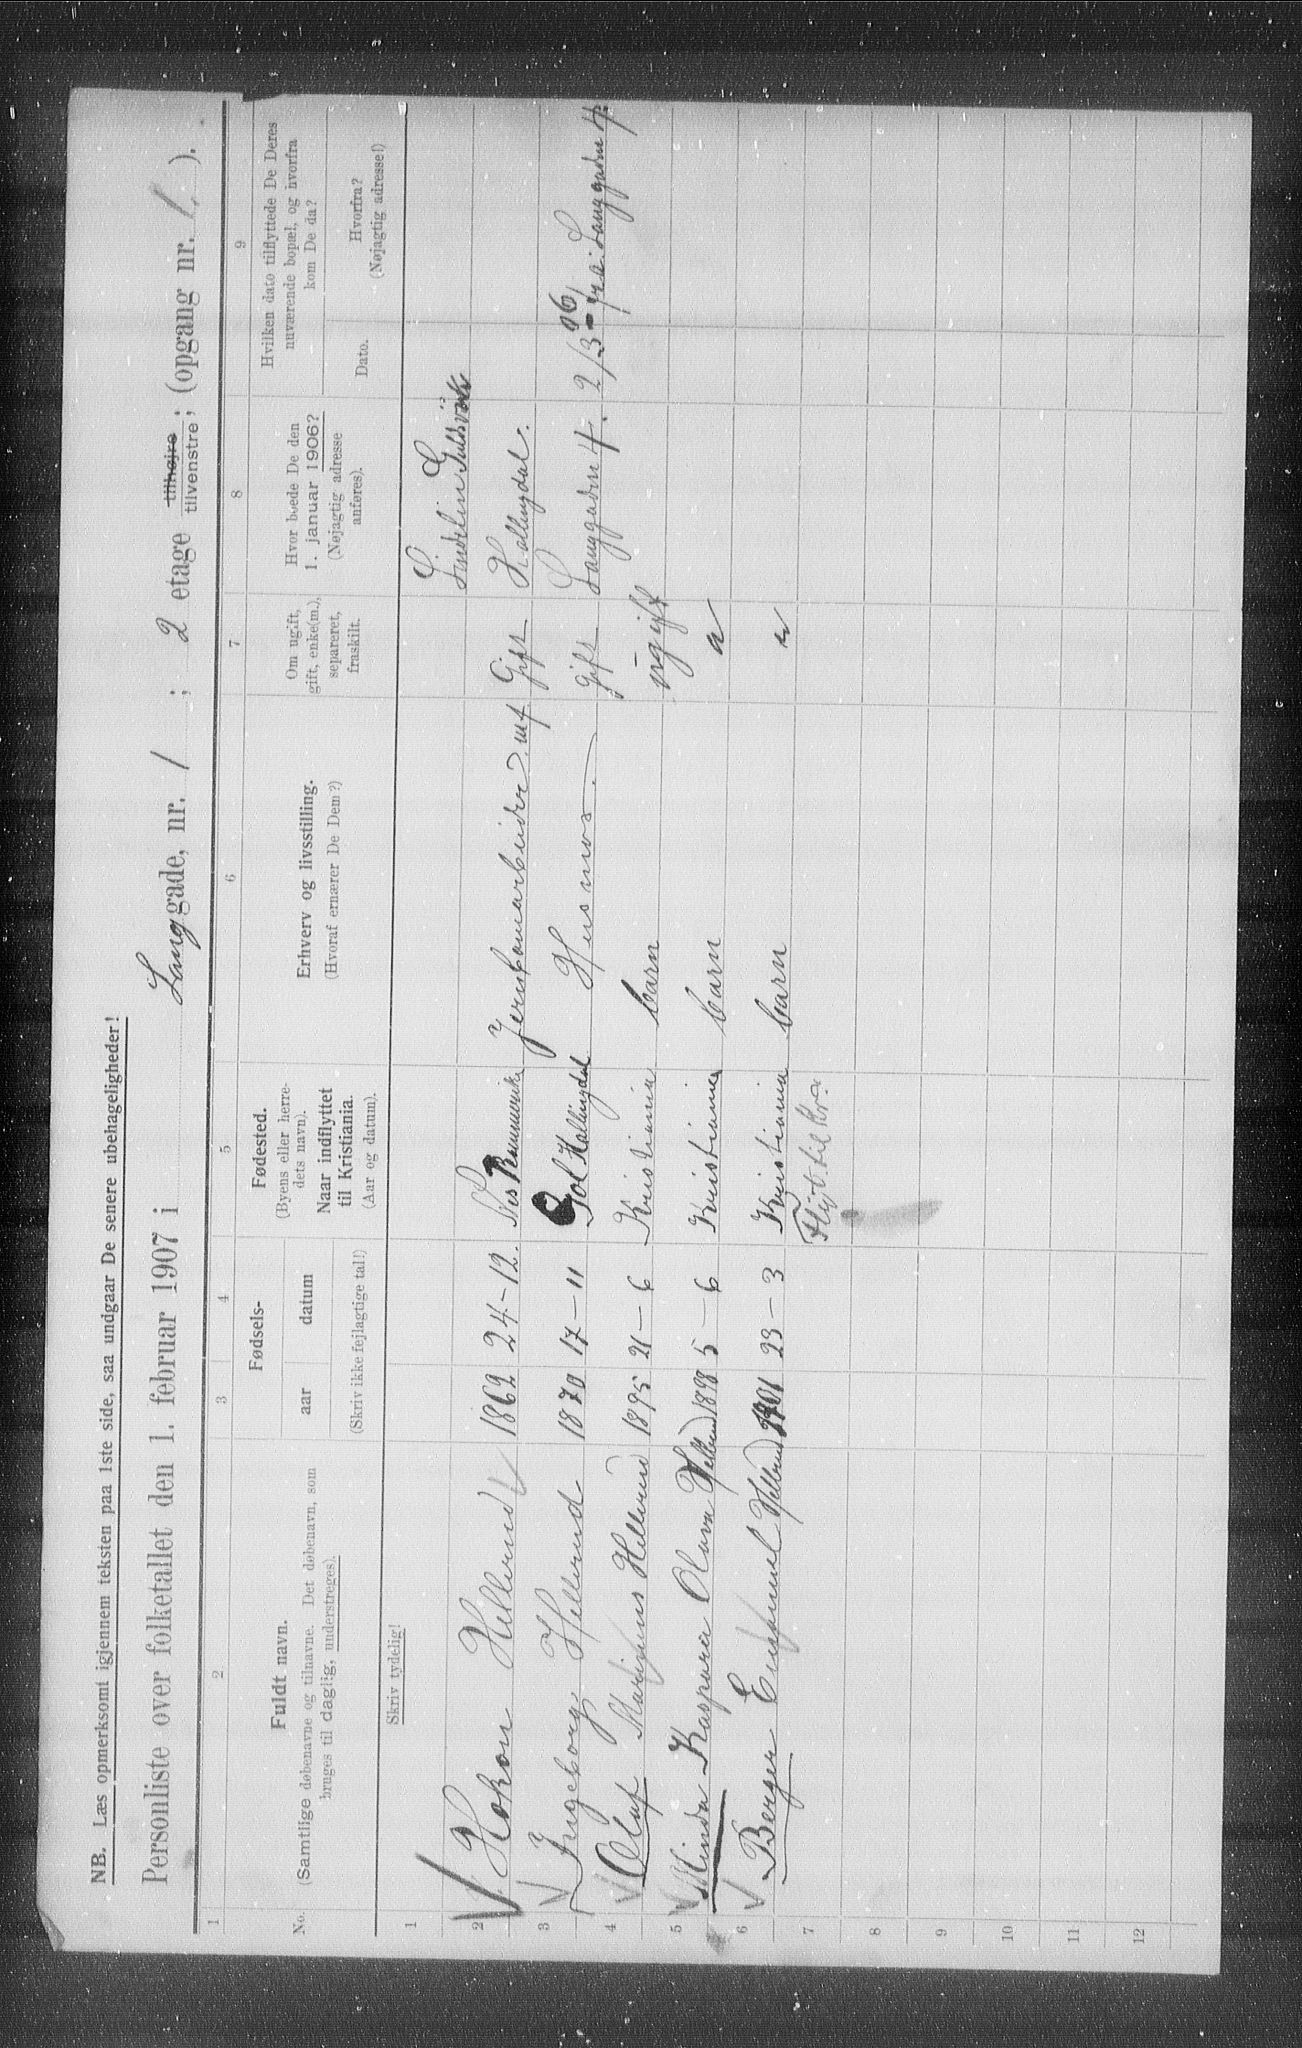 NB. Læs opmerksomt igjennem teksten paa 1ste side, saa undgaar De senere ubehageligheder!
Personliste over folketallet den 1. februar 1907 i Langgade, nr. 1 ; 2 etage tilhøjre tilvenstre; (opgang nr. 1.).
1 2 3 4 5 6 7 8 9
No.
Fuldt navn.
(Samtlige døbenavne og tilnavne. Det døbenavn, som
bruges til daglig, understreges).
Fødsels-
aar datum
(Skriv ikke fejlagtige tal!)
Fødested.
(Byens eller herre-
dets navn).
Naar indflyttet
til Kristiania.
(Aar og datum).
Erhverv og livsstilling.
(Hvoraf ernærer De Dem?)
Om ugift,
gift, enke(m.),
separeret,
fraskilt.
Hvor boede De den
1. januar 1906?
(Nøjagtig adresse
anføres).
Hvilken dato tilflyttede De Deres
nuværende bopæl, og hvorfra
kom De da?
Dato.
Hvorfra?
(Nøjagtig adresse!)
Skriv tydelig!
1
2 Hokon Hellerud 1862 24-12. Nes Romerike Jernbanearbeider Gift Hallingdal.
3 Ingeborg Hellerud 1870 17-11 Gol Hallingdal Husmor. gift Langgaden 4. 2/3-06 fra Langgaden 4
4 Olaf Marinius Hellerud 1895 21-6 Kristiania barn ugift
5 Minda Kaspara Olava Hellerud 1898 5-6 Kristiania barn "
6 Berger Emanuel Hellerud 1901 23-3 Kristiania barn "
Flyt til Kr.a
7
8
9
10
11
12